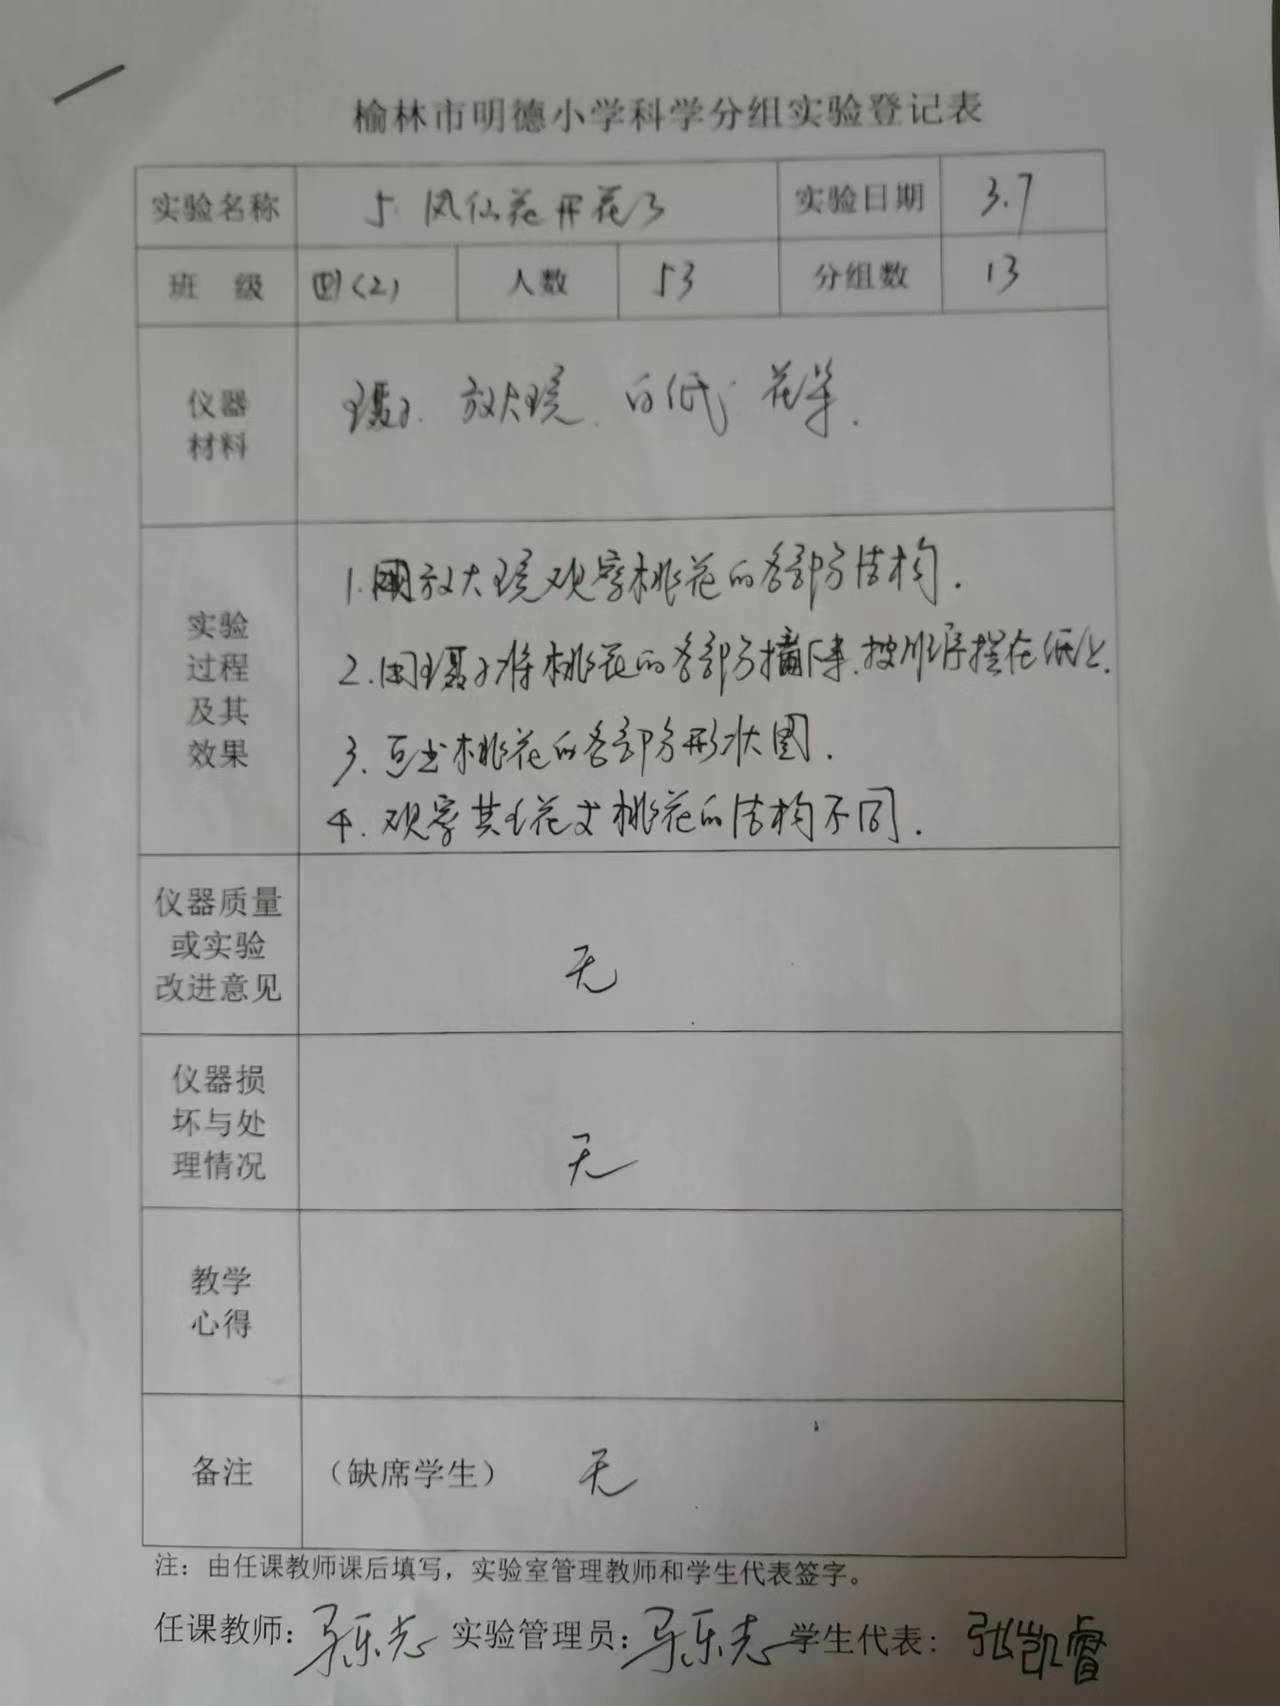 榆林市明德小学科学分组实验登记表
实验名称 5. 凤仙花开花了 实验日期 3.7
班 级 四(2) 人数 53 分组数 13
仪器
材料
镊子. 放大镜. 白纸. 花朵.
实验
过程
及其
效果
1.用放大镜观察桃花的各部分结构.
2.用镊子将桃花的各部分摘下来.按顺序摆在纸上.
3.画出桃花的各部分形状图.
4.观察其它花与桃花的结构不同.
仪器质量
或实验
改进意见
无
仪器损
坏与处
理情况
无
教学
心得
备注 (缺席学生) 无
注：由任课教师课后填写，实验室管理教师和学生代表签字。
任课教师： 实验管理员： 学生代表：张凯睿